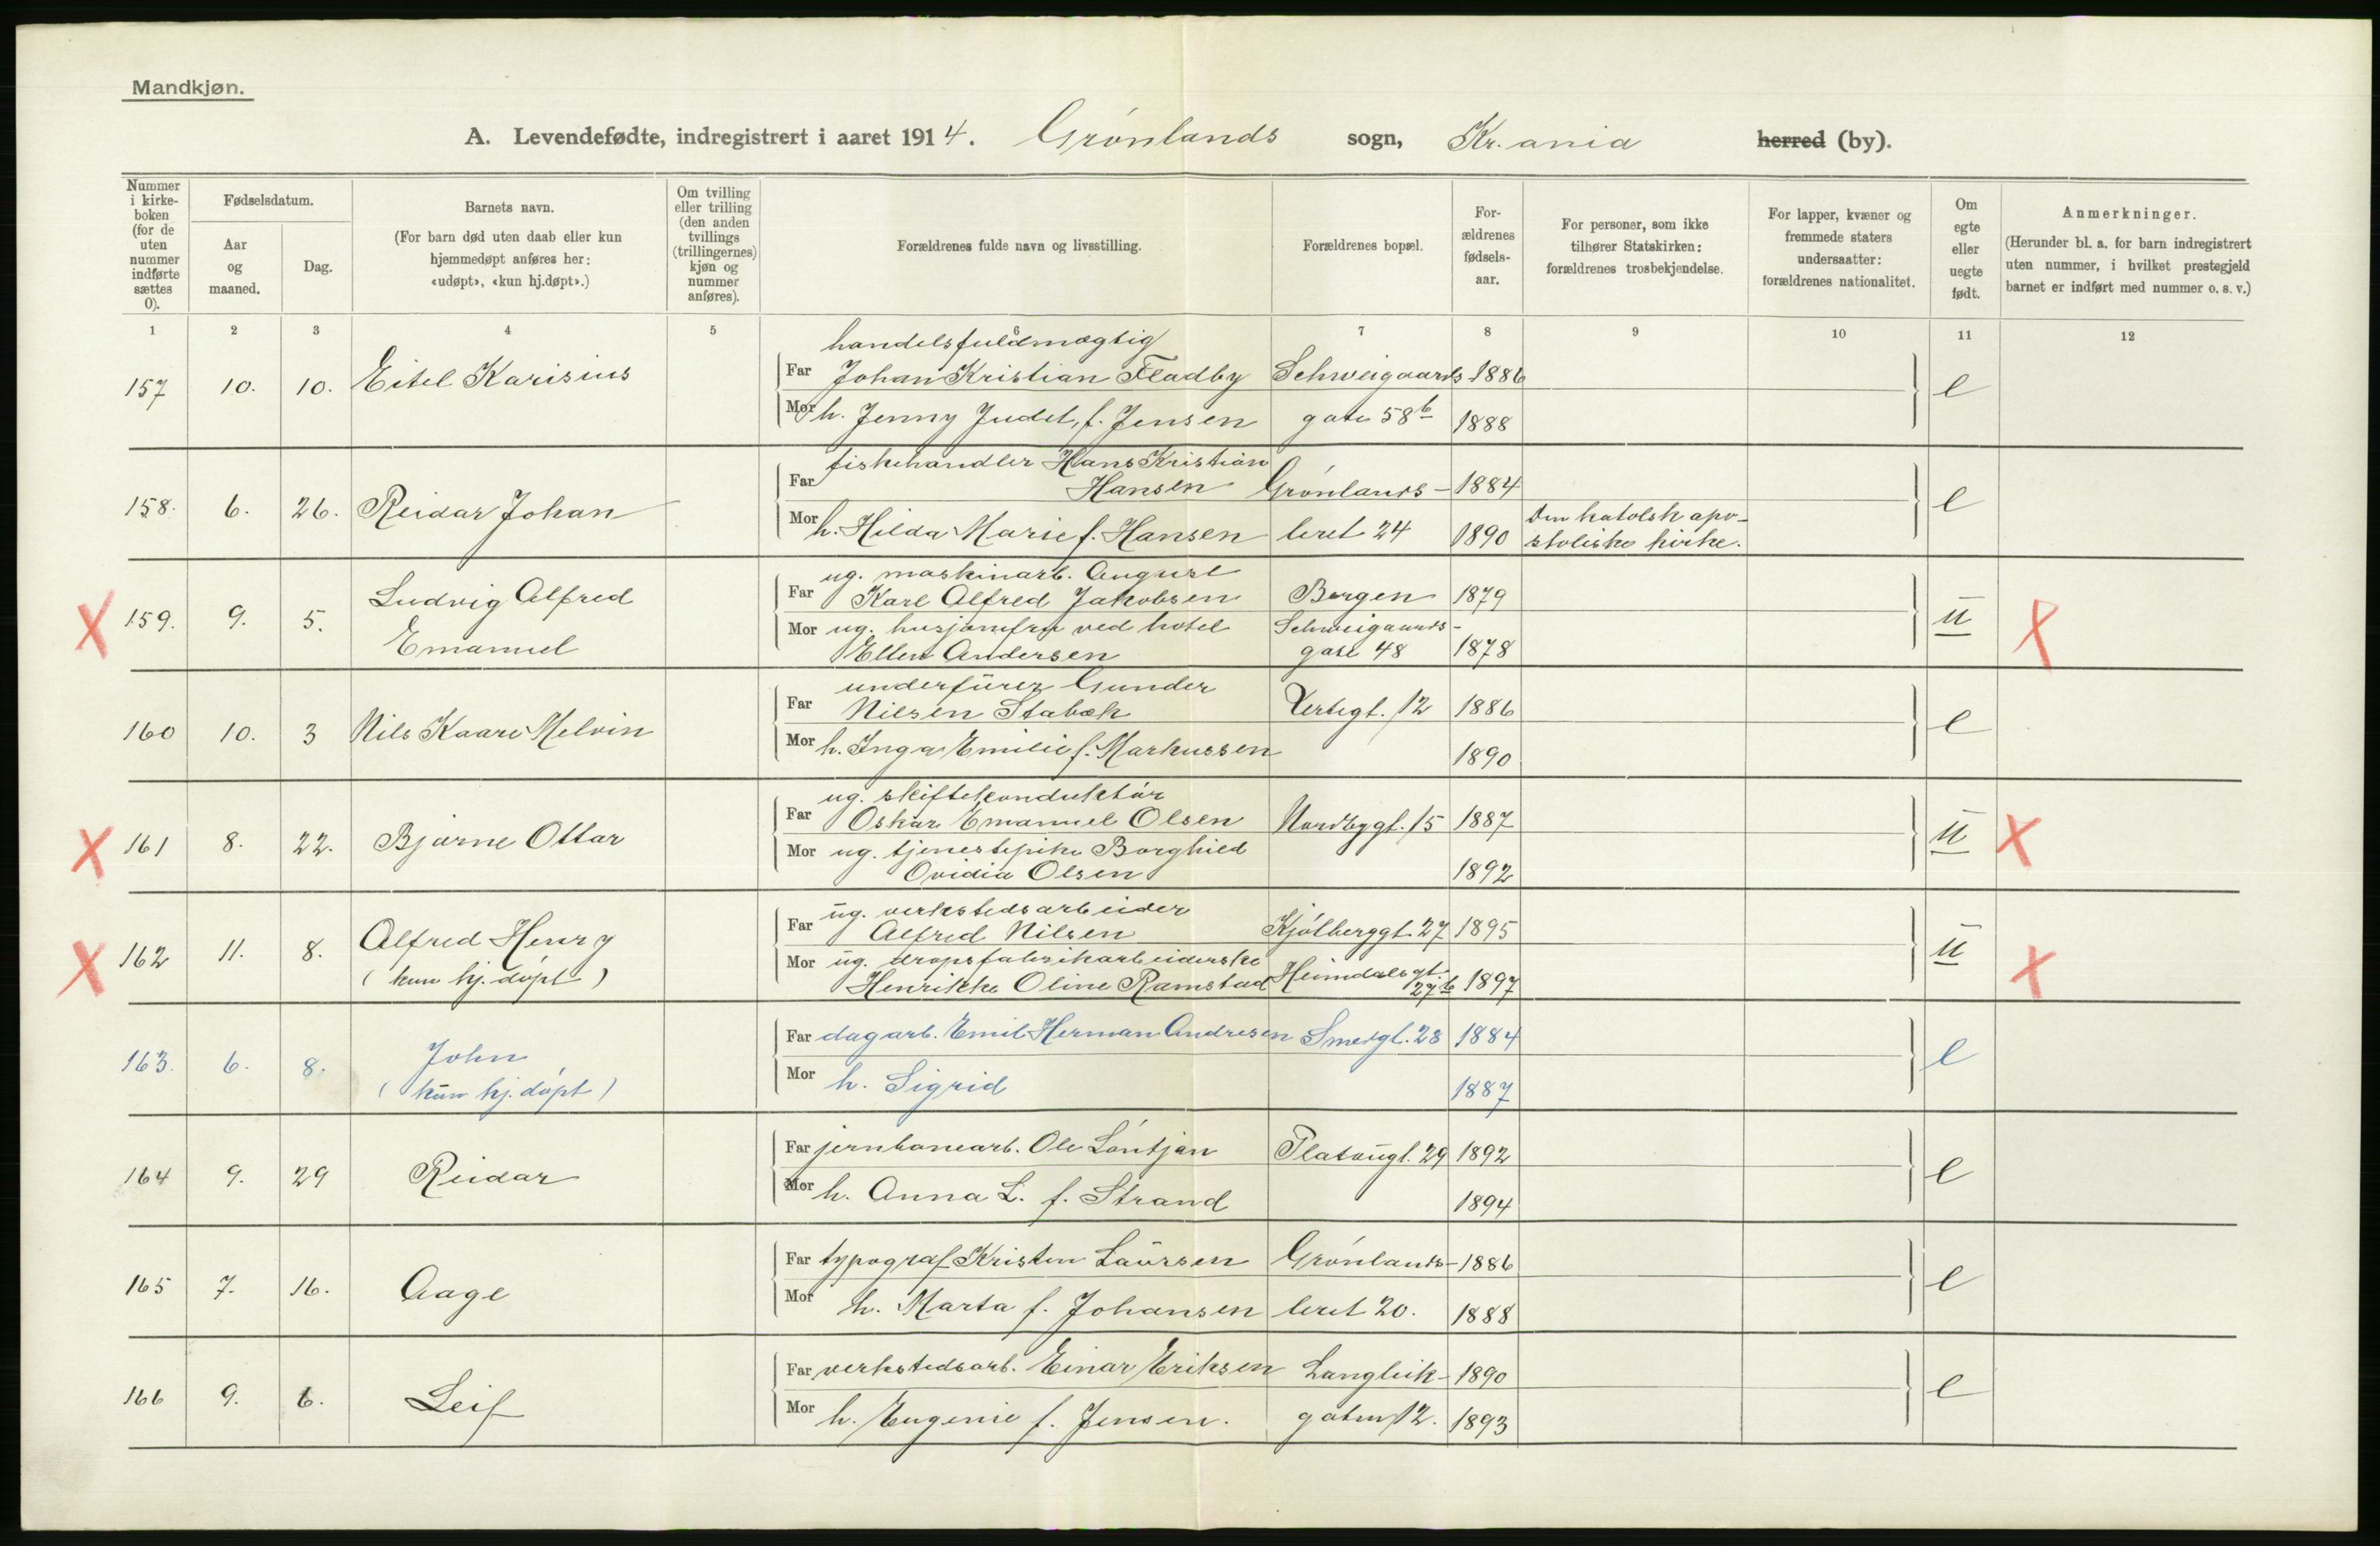 Mandkjøn.
A. Levendefødte, indregistrert i aaret 1914. Grönlands sogn, Kr.ania herred (by).
Nummer i kirke-boken (for de uten nummer indførte sættes 0).
Fødselsdatum.
Aar og maaned.
Dag.
Barnets navn.
(For barn død uten daab eller kun hjemmedøpt anføres her: «udøpt», «kun hj.døpt».)
Om tvilling eller trilling (den anden tvillings (trillingernes) kjøn og nummer anføres).
Forældrenes fulde navn og livsstilling.
Forældrenes bopæl.
For-ældrenes fødsels-aar.
For personer, som ikke tilhører Statskirken: forældrenes trosbekjendelse.
For lapper, kvæner og fremmede staters undersaatter: forældrenes nationalitet.
Om egte eller uegte født.
Anmerkninger.
(Herunder bl. a. for barn indregistrert uten nummer, i hvilket prestegjeld barnet er indført med nummer o. s. v.)
1 2 3 4 5 6 7 8 9 10 11 12
handelsfuldmægtig
157 10. 10. Eitel Karisius Far Johan Kristian Fladby Schweigaards 1886 e
Mor h. Jenny Judit, f. Jensen gate 58b 1888
fiskehandler Hans Kristian
158. 6. 26. Reidar Johan Far Hansen Grönlands- 1884 e
Mor h. Hilda Marie f. Hansen leret 24 1890 Den katolsk apo-
stoliske kirke.
ug. maskinarb. August
X 159. 9. 5. Ludvig Alfred Far Karl Alfred Jakobsen Bergen 1879 u X
Emanuel Mor ug. husjomfru ved hotel Schweigaards-
Ellen Andersen gate 48 1878
underfürer Gunder
160 10. 3 Nils Kaare Melvin Far Nilsen Stabæk Verksgt. 12 1886 e
Mor h. Inga Emilie f. Markussen 1890
ug. skiftekonduktör
X 161 8. 22. Bjarne Ottar Far Oskar Emanuel Olsen Nordbygt. 15 1887 u X
Mor ug. tjenestepike Borghild
Ovidia Olsen 1892
ug. verkstedsarbeider
X 162 11. 8. Alfred Henry Far Alfred Nilsen Kjölberggt. 27 1895 u X
(kun hj. döpt) Mor ug. dropsfabrikarbeiderske
Henrikke Oline Ramstad Heimdalsgt. 27b 1897
163. 6. 8. John Far dagarb. Emil Herman Andresen Smedgt. 28 1884 e
(kun hj. döpt) Mor h. Sigrid 1887
164 9. 29 Reidar Far jernbanearb. Ole Löntjan Platougt. 29 1892 e
Mor h. Anna L. f. Strand 1894
165 7. 16. Aage Far typograf Kristen Laursen Grönlands- 1886 e
Mor h. Marta f. Johansen leret 20. 1888
166 9. 6. Leif Far verkstedsarb. Einar Eriksen Langleik- 1890 e
Mor h. Eugenie f. Jensen. gaten 12. 1893